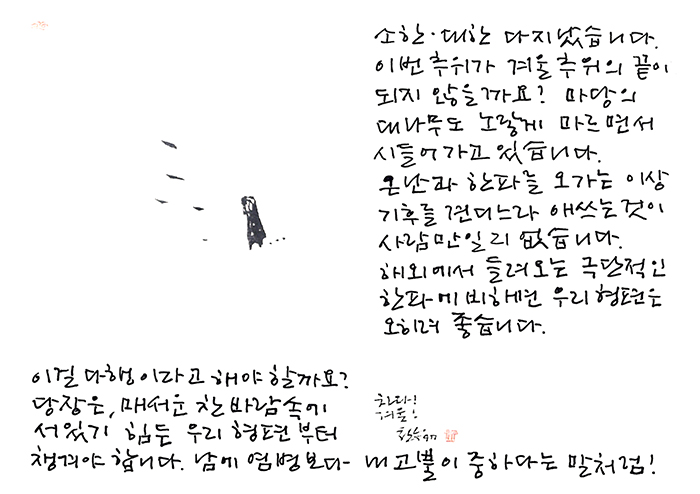 소한·대한 다 지났습니다.
이번 추위가 겨울 추위의 끝이
되지 않을까요? 마당의
대나무도 노랗게 마르면서
시들어가고 있습니다.
온난과 한파를 오가는 이상
기후를 견디느라 애쓰는 것이
사람만일리 없습니다.
해외에서 들려오는 극단적인
한파에 비하면 우리 형편은
오히려 좋습니다.
이걸 다행이라고 해야 할까요?
당장은, 매서운 찬바람 속에
서있기 힘든 우리 형편부터
챙겨야 합니다. 남에 염병보다 내 고뿔이 중하다는 말처럼!
차다!
겨울!